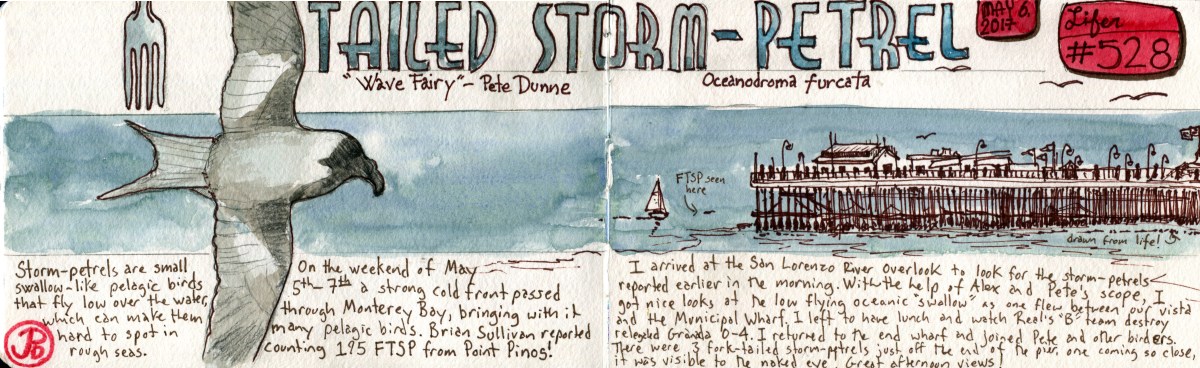 TAILED STORM-PETREL
MAY 6,
2017
Lifer
#528
"Wave Fairy" - Pete Dunne
Oceanodroma furcata
FTSP seen
here
drawn from life!
Storm-petrels are small
swallow-like pelagic birds
that fly low over the water,
which can make them
hard to spot in
rough seas.
On the weekend of May
5th-7th a strong cold front passed
through Monterey Bay, bringing with it
many pelagic birds. Brian Sullivan reported
counting 175 FTSP from Point Pinos!
I arrived at the San Lorenzo River Overlook to look for the storm-petrels
reported earlier in the morning. With the help of Alex and Pete's scope, I
got nice looks at the low flying oceanic "swallow" as one flew between our vista
and the Municipal Wharf. I left to have lunch and watch Real's "B" team destroy
relegated Granada 0-4. I returned to the end wharf and joined Pete and other birders.
There were 3 fork-tailed storm-petrels just off the end of the pier, one coming so close,
it was visible to the naked eye. Great afternoon views!